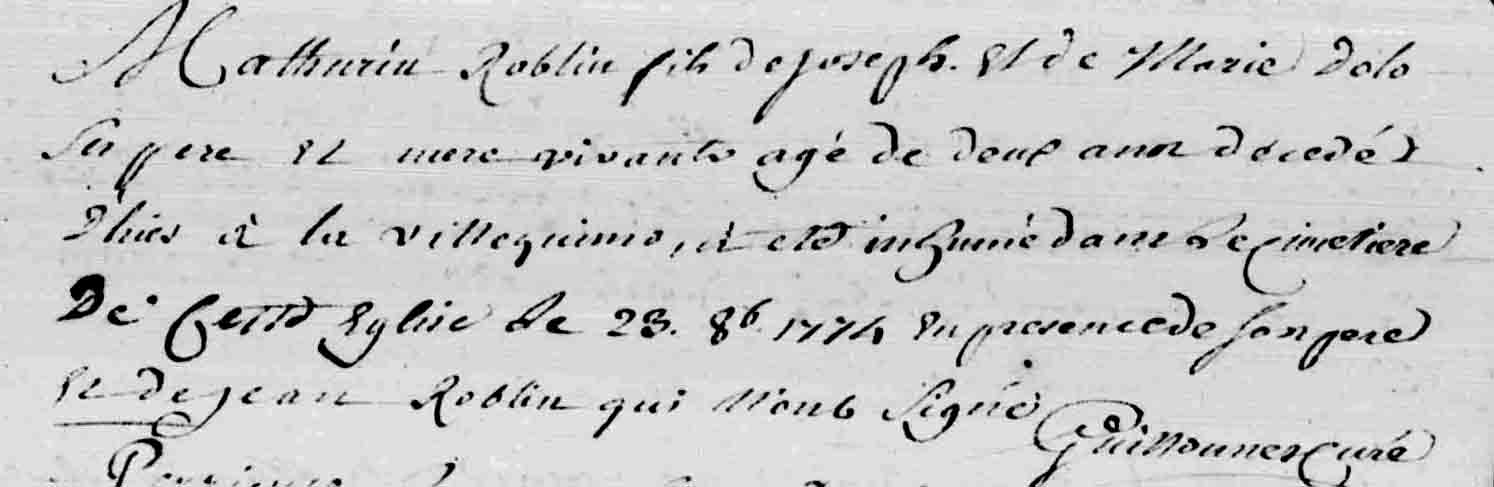 Mathurin Roblin fils de joseph. Et de Marie Dolo
ses pere et mere vivants agé de deux ans decedés
D'hier à la villeguimo, à eté inhumé dans le cimetiere
De Cette Eglise le 23. 8b. 1774 En presence de son pere
Et de jean Roblin qui n'ont signé
Guillonner Curé
Perrinne